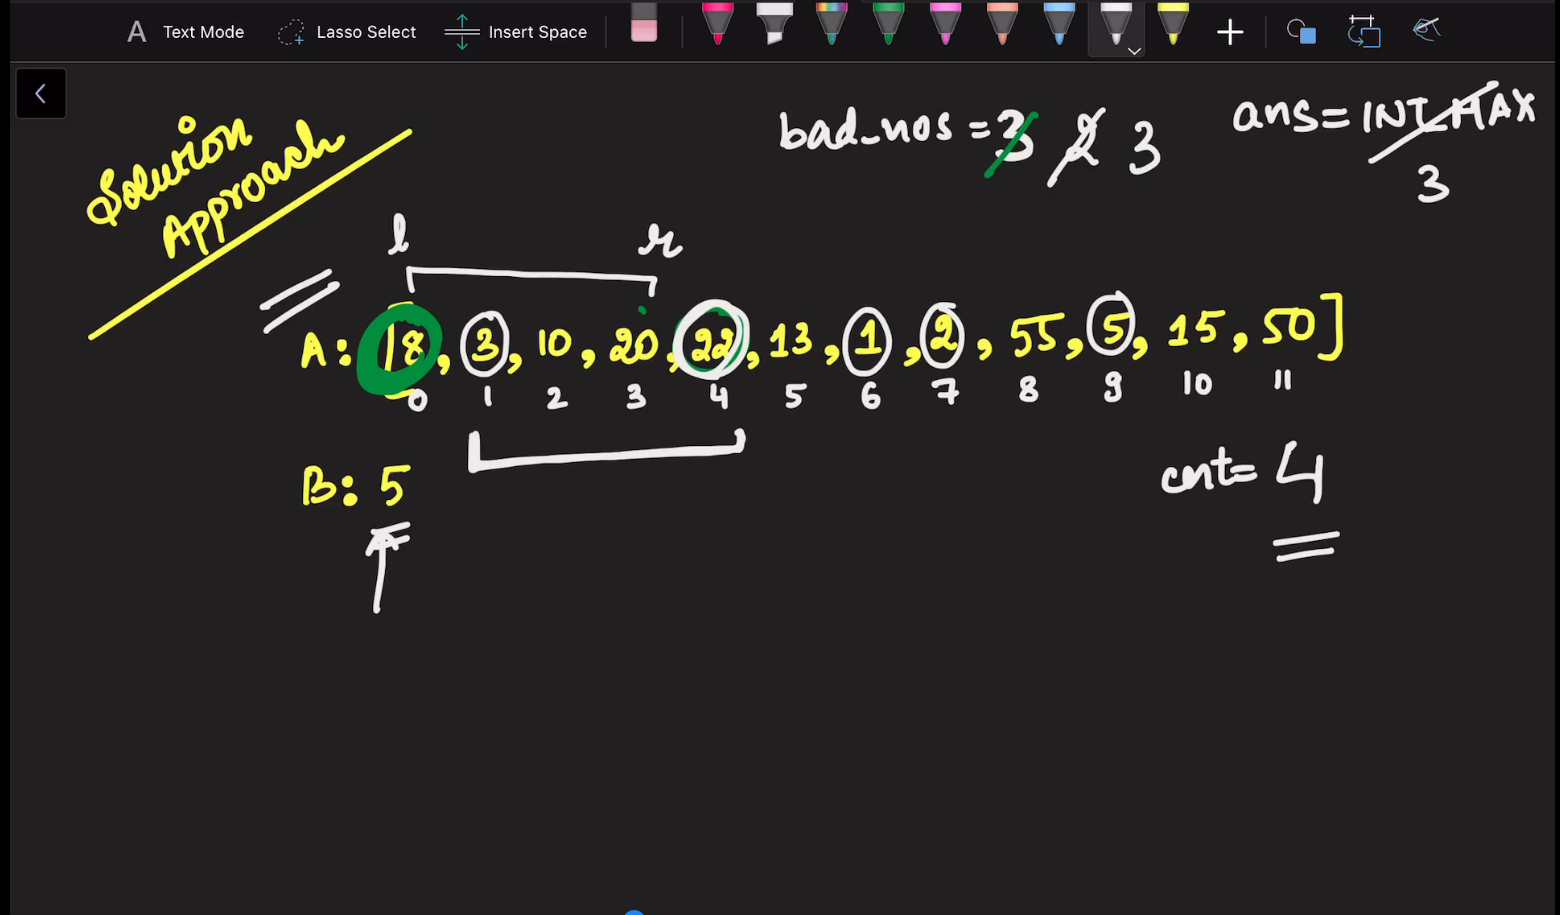 A Text Mode Lasso Select Insert Space
Solution
Approach
bad_nos = 3 2 3
ans = INT_MAX
3
l r
A: [18, 3, 10, 20, 22, 13, 1, 2, 55, 5, 15, 50]
0 1 2 3 4 5 6 7 8 9 10 11
B: 5
cnt= 4